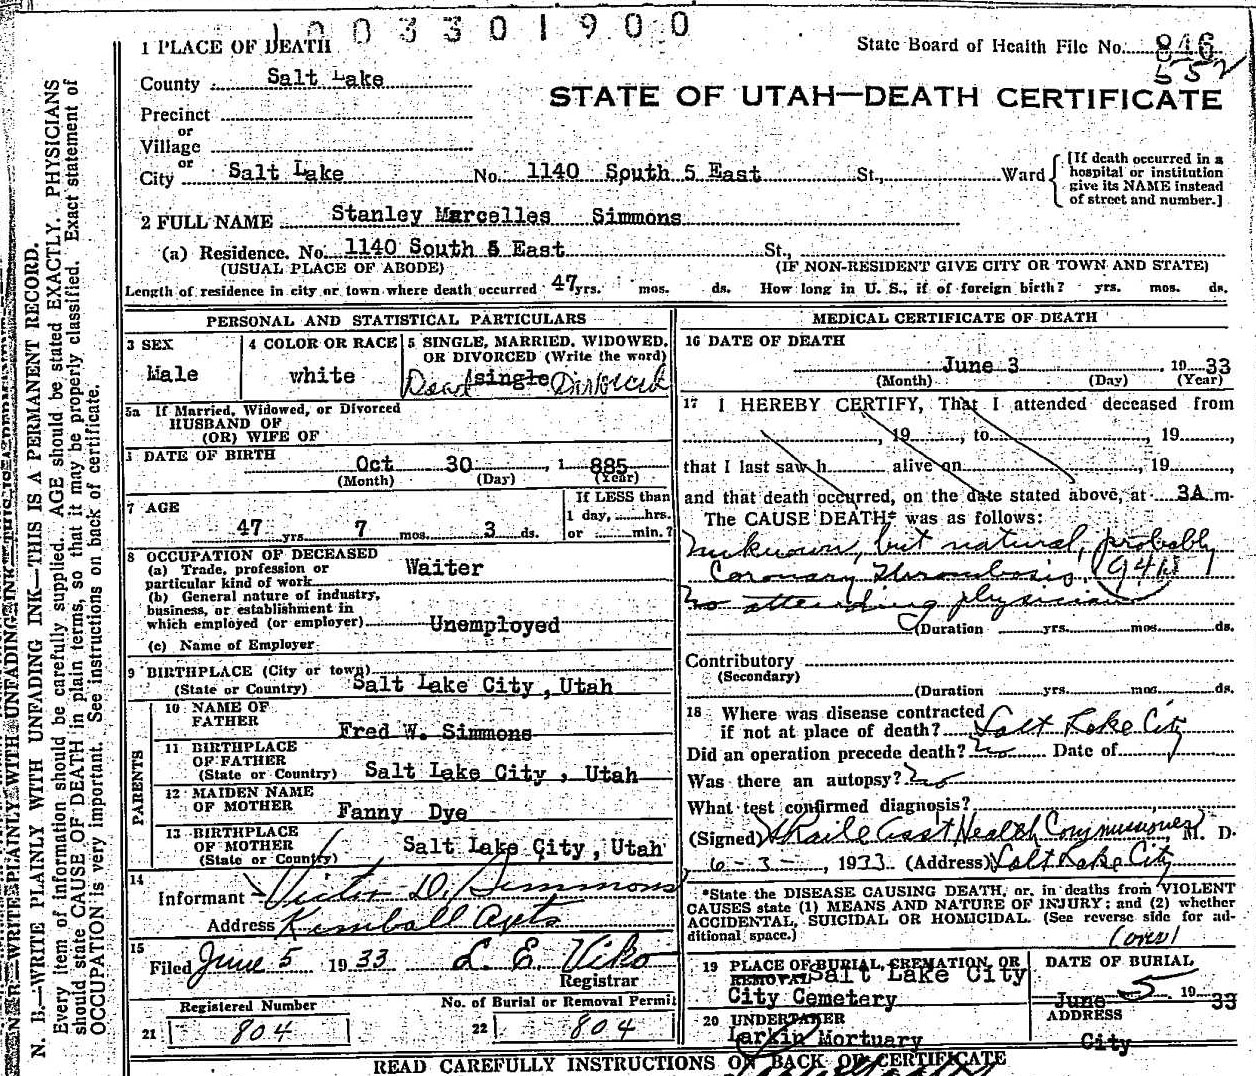 1003301900
1 PLACE OF DEATH
State Board of Health File No. 846
552
County Salt Lake
STATE OF UTAH—DEATH CERTIFICATE
Precinct
or
Village
or
City Salt Lake No. 1140 South 5 East St., Ward
[If death occurred in a
hospital or institution
give its NAME instead
of street and number.]
2 FULL NAME Stanley Marcelles Simmons
(a) Residence. No. 1140 South 5 East St.,
(USUAL PLACE OF ABODE) (IF NON-RESIDENT GIVE CITY OR TOWN AND STATE)
Length of residence in city or town where death occurred 47 yrs. mos. ds. How long in U. S., if of foreign birth? yrs. mos. ds.
PERSONAL AND STATISTICAL PARTICULARS
3 SEX
Male
4 COLOR OR RACE
white
5 SINGLE, MARRIED, WIDOWED,
OR DIVORCED (Write the word)
single Divorced
5a If Married, Widowed, or Divorced
HUSBAND OF
(OR) WIFE OF
DATE OF BIRTH
Oct 30, 1 885
(Month) (Day) (Year)
7 AGE
47 yrs. 7 mos. 3 ds.
If LESS than
1 day, hrs.
or min.?
8 OCCUPATION OF DECEASED
(a) Trade, profession or
particular kind of work Waiter
(b) General nature of industry,
business, or establishment in
which employed (or employer) Unemployed
(c) Name of Employer
9 BIRTHPLACE (City or town)
(State or Country) Salt Lake City, Utah
PARENTS
10 NAME OF
FATHER Fred W. Simmons
11 BIRTHPLACE
OF FATHER
(State or Country) Salt Lake City, Utah
12 MAIDEN NAME
OF MOTHER Fanny Dye
13 BIRTHPLACE
OF MOTHER
(State or Country) Salt Lake City, Utah
14
Informant Victor D. Simmons
Address Kimball Apts
15
Filed June 5 1933 L. E. Viko
Registrar
Registered Number
21 804
No. of Burial or Removal Permit
22 804
MEDICAL CERTIFICATE OF DEATH
16 DATE OF DEATH
June 3 1933
(Month) (Day) (Year)
17 I HEREBY CERTIFY, That I attended deceased from
, 19, to, 19,
that I last saw h alive on, 19,
and that death occurred, on the date stated above, at 3A m.
The CAUSE DEATH* was as follows:
Unknown, but natural, probably
Coronary Thrombosis
no attending physician
(Duration yrs. mos. ds.
Contributory
(Secondary)
(Duration yrs. mos. ds.
18 Where was disease contracted
if not at place of death? Salt Lake City
Did an operation precede death? no Date of
Was there an autopsy? no
What test confirmed diagnosis?
(Signed) Asst Health Commissioner M. D.
6-3-, 1933 (Address) Salt Lake City
*State the DISEASE CAUSING DEATH, or, in deaths from VIOLENT
CAUSES state (1) MEANS AND NATURE OF INJURY; and (2) whether
ACCIDENTAL, SUICIDAL OR HOMICIDAL. (See reverse side for ad-
ditional space.)
(over)
19 PLACE OF BURIAL, CREMATION, OR
REMOVAL Salt Lake City
City Cemetery
DATE OF BURIAL
June 5 1933
20 UNDERTAKER
Larkin Mortuary
ADDRESS
City
READ CAREFULLY INSTRUCTIONS ON BACK OF CERTIFICATE
N. B.—WRITE PLAINLY WITH UNFADING INK—THIS IS A PERMANENT RECORD.
Every item of information should be carefully supplied. AGE should be stated EXACTLY. PHYSICIANS
should state CAUSE OF DEATH in plain terms, so that it may be properly classified. Exact statement of
OCCUPATION is very important. See instructions on back of certificate.